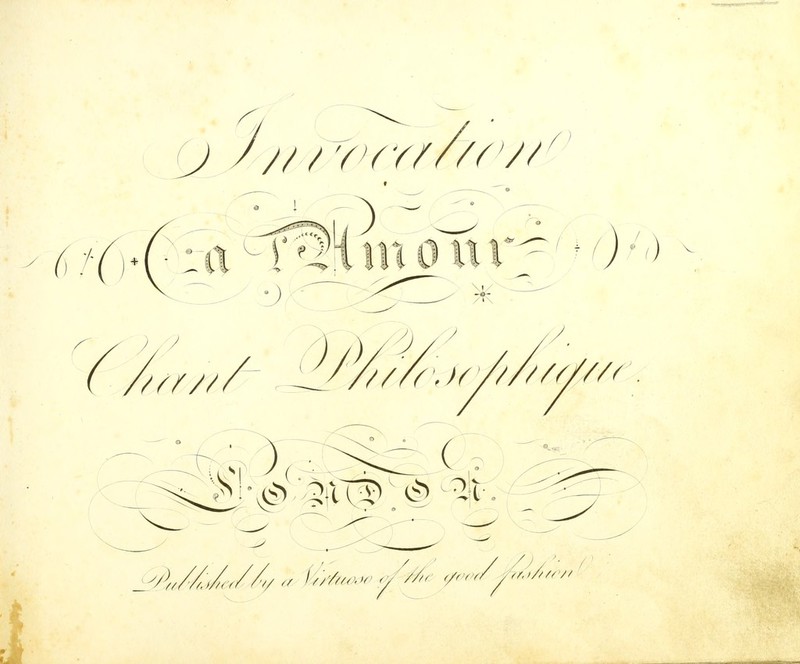 Invocation
a l'Amour
Chant Philosophique.
LONDON.
Published by a Virtuoso of the good fashion